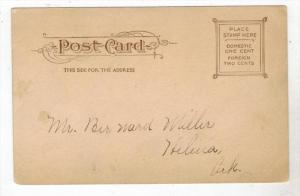 Post Card
THIS SIDE FOR THE ADDRESS
PLACE
STAMP HERE
DOMESTIC
ONE CENT
FOREIGN
TWO CENTS
Mr. Bernard Miller
Helena,
Ark.